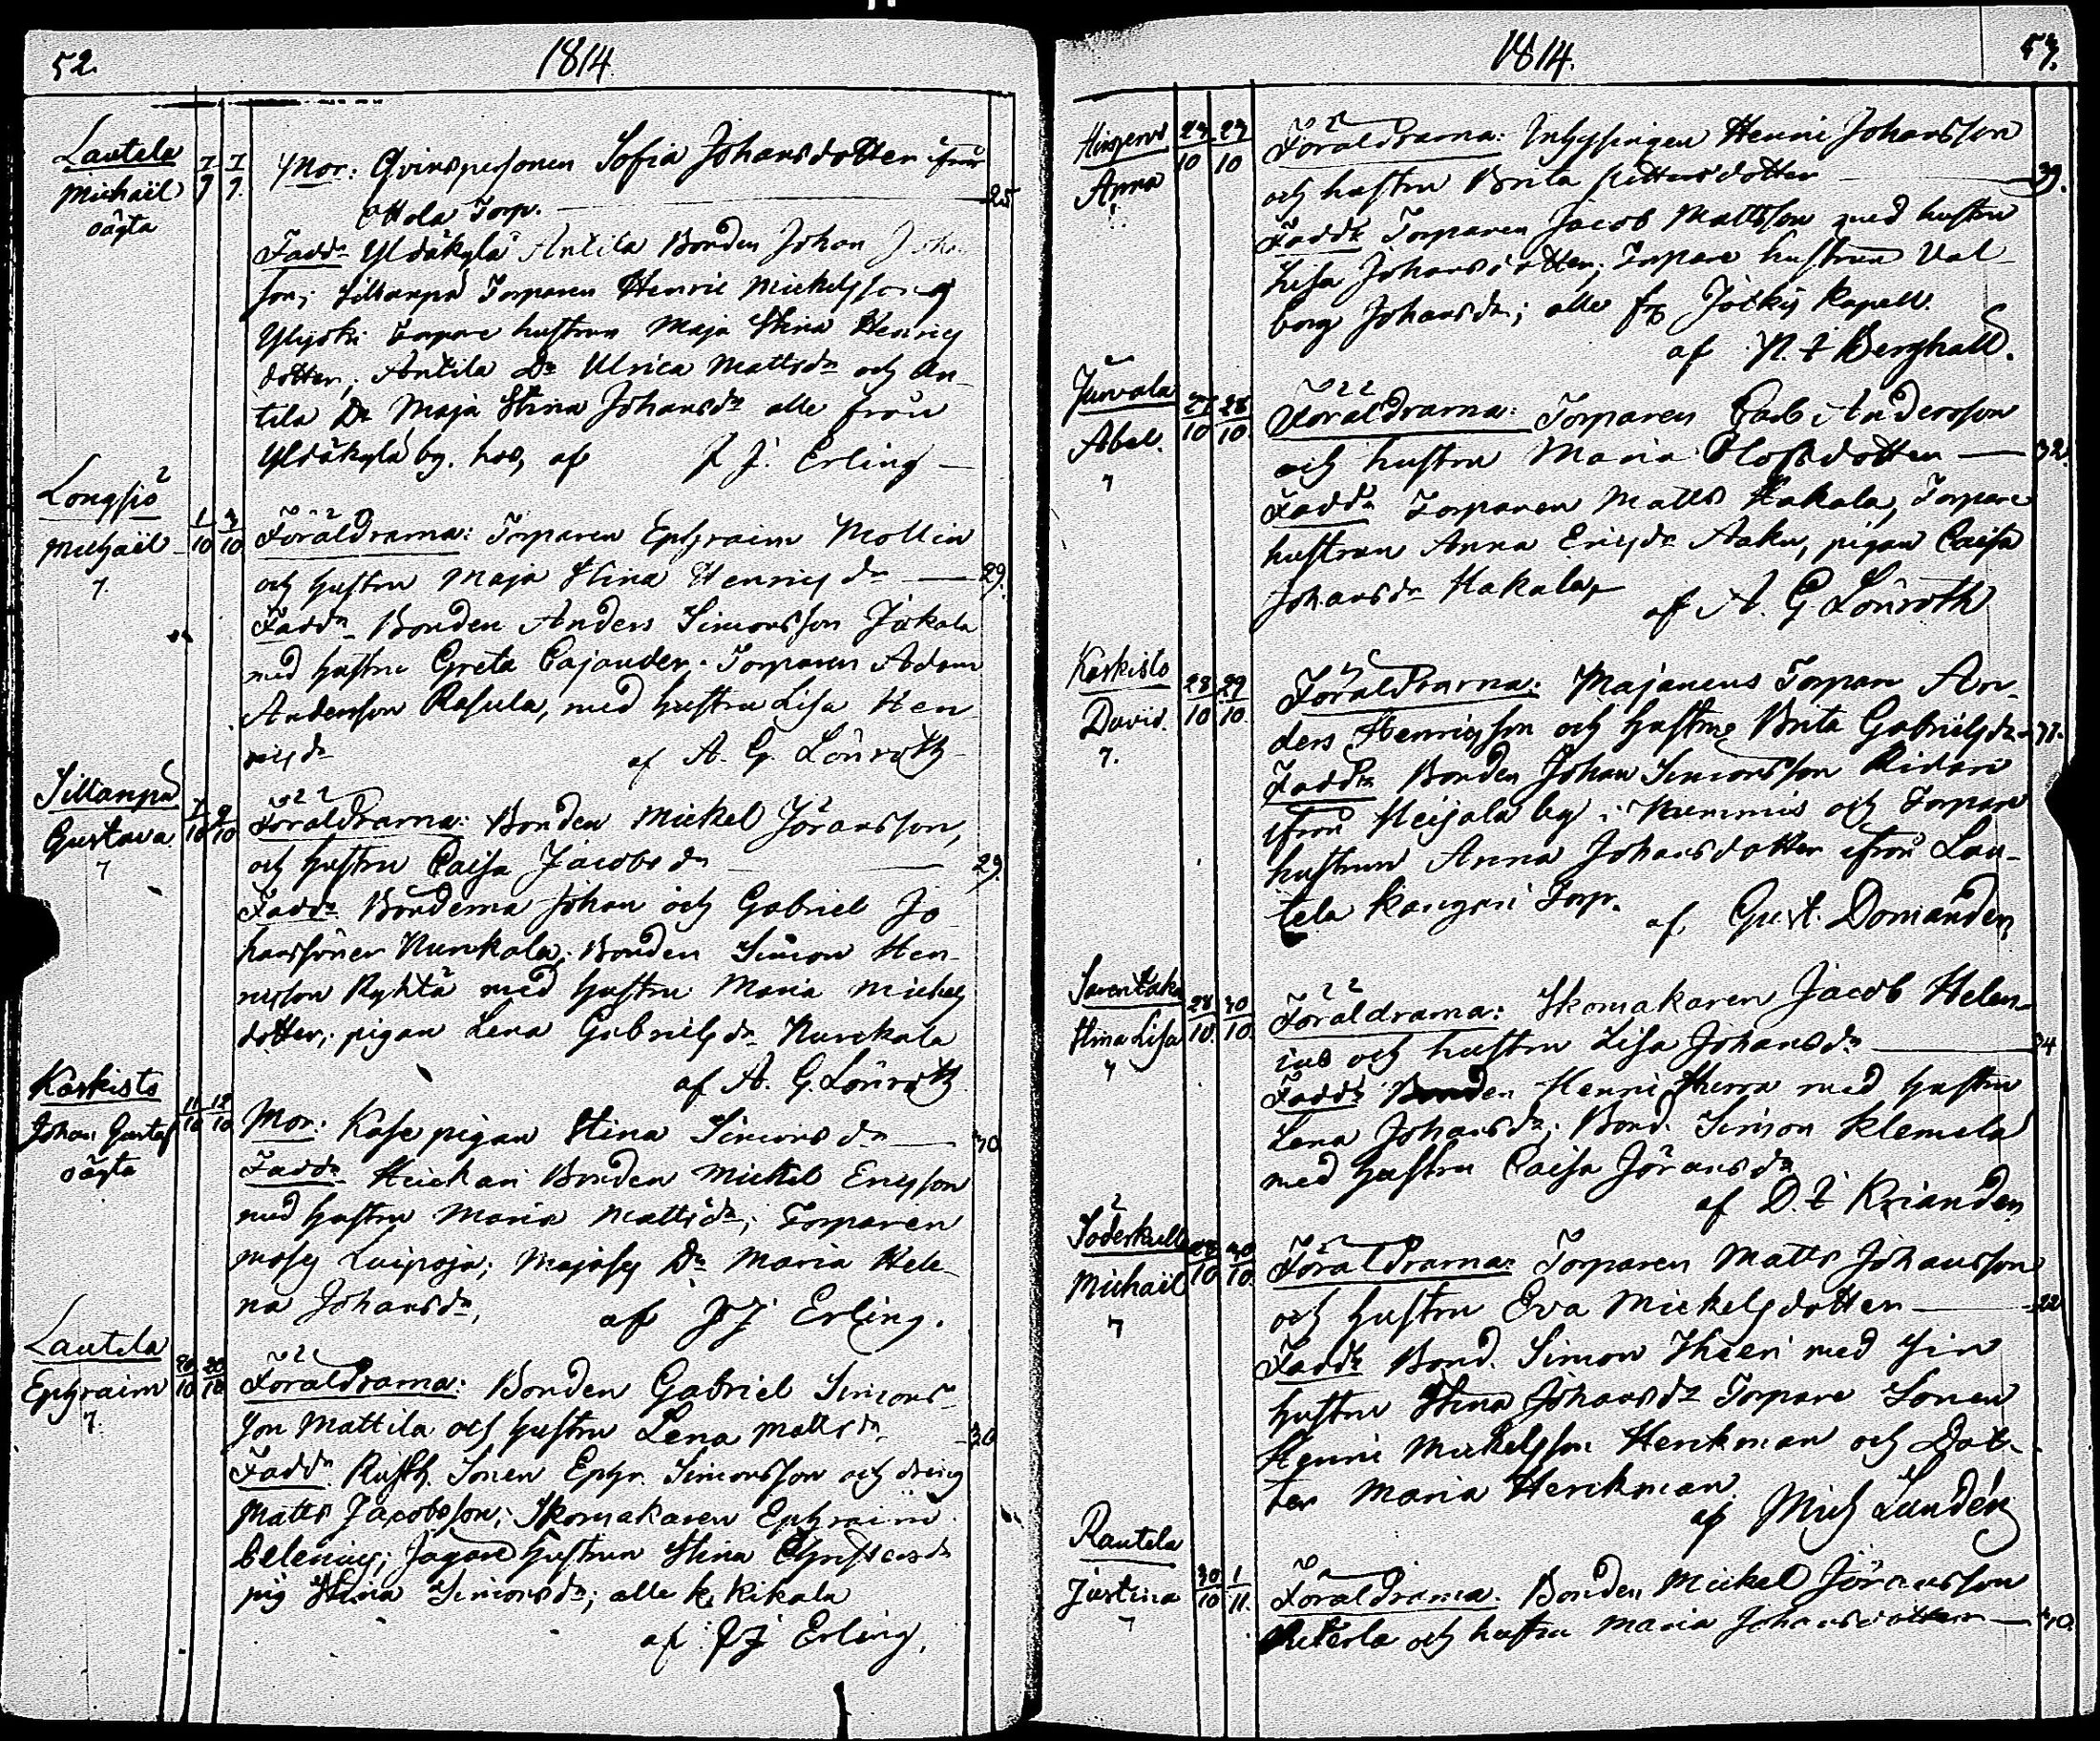 52.
1814
Lautela
Michaël
oägta
7/9 7/9
Mor: Qvinspersonen Sofia Johansdotter ifrån
Ottola Torp. 25
Fadd. Yldäkylä Antila Bonden Johan Joha
son; Sillanpä Torparen Henric Mickelsson
Ylijoki Torpare hustrun Maja Stina Henrics
dotter; Antila Dr Ulrica Mattsdr och An-
tila Dr Maja Stina Johansdr alle från
Yldäkylä by. hos, af J J. Erling
Longsjö
Michaël
7.
1/10 3/10
Föräldrarna: Torparen Ephraim Mollin
och hustru Maja Stina Henricsdr 29.
Fadd. Bonden Anders Simonsson Jokala
med hustru Greta Cajander. Torparen Adam
Andersson Rasula, med hustru Lisa Hen
ricsdr af A. G. Lönroth
Sillanpä
Gustava
7
7/10 9/10
Föräldrarna: Bonden Mickel Jöransson,
och hustru Caisa Jacobsdr 29.
Fadd. Bönderna Johan och Gabriel Jo
hanssöner Nurckala; Bonden Simon Hen-
ricsson Ryhtä med hustru Maria Mickels
dotter; pigan Lena Gabrielsdr Nurckala
af A. G. Lönroth
Karkisto
Johan Gustaf
oägta
11/10 12/10
Mor: Kase pigan Stina Simonsdr 30
Fadd. Heickari Bonden Mickel Ericsson
med hustru Maria Mattsdr; Torparen
Moses Luipoja; Majasy Dr Maria Hele-
na Johansdr, af JJ Erling.
Lautela
Ephraim
7.
20/10 20/10
Föräldrarna: Bonden Gabriel Simons-
son Mattila och hustru Lena Mattsdr 30
Fadd. Rusth. Sonen Ephr. Simonsson och dräng
Matts Jacobsson; Skomakaren Ephraim
Celenius; Jägare hustrun Stina
pig Stina Simonsdr; alle fr. Kikala
af JJ Erling.
1814.
53.
Anna
23/10 23/10
Föräldrarna: Inhysingen Henric Johansson
och hustru Brita Pettersdotter 39.
Fadd. Torparen Jacob Mattsson med hustru
Lisa Johansdotter; Torpare hustrun Val-
borg Johansdr; alle fr. Jockis Kapell.
af N. J Berghäll.
Jurvala
Abel.
7
27/10 28/10
Föräldrarna: Torparen Carl Andersson
och hustru Maria Olofsdotter 32.
Fadd. Torparen Matts Hakala, Torpare
hustrun Anna Ericsdr Aaku, pigan Caisa
Johansdr Hakala,
af A. G. Lönroth
Karkisto
David.
7.
28/10 29/10
Föräldrarna: Majaneus Torpare An-
ders Henricsson och hustru Brita Gabrielsdr
Fadd. Bonden Johan Simonsson Ridari
ifrån Heijala by i Nummis och Torpare
hustrun Anna Johansdotter ifrån Lau-
tela Kangari Torp.
af. Gust. Domander
Stina Lisa
7
28/10 30/10
Föräldrarna: Skomakaren Jacob Helen-
ius och hustru Lisa Johansdr 34
Fadd. Bonden Henric Skerra med hustru
Lena Johansdr; Bond. Simon Klemela
med hustru Caisa Jöransdr
af D. J Kriander
Söderkulla
Michaël
7
28/10 30/10
Föräldrarna: Torparen Matts Johansson
och hustru Eva Mickelsdotter 22
Fadd. Bond. Simon med sin
hustru Stina Johansdr Torpare Sonen
Henric Mickelsson Henkman och Dot-
ter Maria Henkman.
af Mich Lundén
Rautela
Justina
7
30/10 1/11.
Föräldrarna: Bonden Mickel Jöransson
och hustru Maria Johansdotter 40.